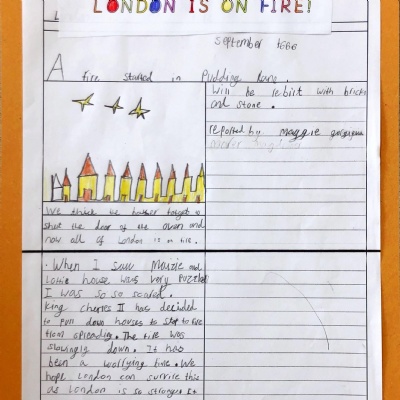 LONDON IS ON FIRE!
September 1666
A fire started in Pudding Lane.
We think the bather forgot to
shut the door of the oven and
now all of London is on fire.
. When I saw Maizie and
Lottie house was very puzzled
I was so so scared.
King cherles II has decided
to pull down houses to stop to fire
from spreading. The fire was
slowingly down. It has
been a worrying time. We
hope London can survive this
as London is so stronger It
Will be rebilt with bricks
and stone.
reported by maggie